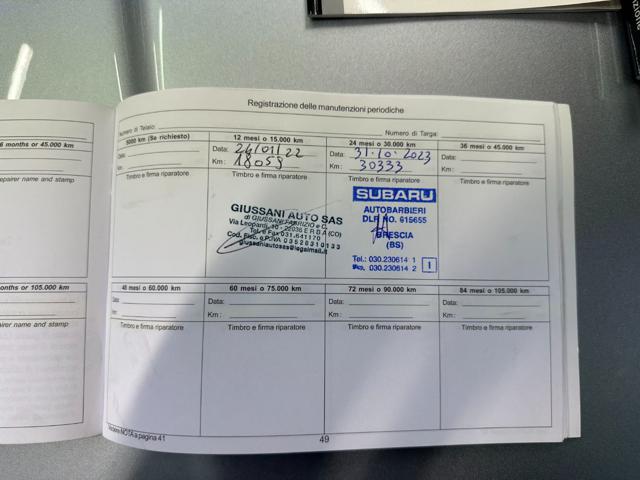 Registrazione delle manutenzioni periodiche
Numero di Telaio:
Numero di Targa:
months or 45.000 km
repairer name and stamp
5000 km (Se richiesto)
Data:
Km:
Timbro e firma riparatore
12 mesi o 15.000 km
Data: 24/01/22
Km: 18059
Timbro e firma riparatore
GIUSSANI AUTO SAS
di GIUSSANI FABRIZIO e C.
Via Leopardi, 10 - 22036 ERBA (CO)
Tel. e Fax 031.641170
Cod. Fisc. e P.IVA 03528310133
giussaniautosas@legalmail.it
24 mesi o 30.000 km
Data: 31.10.2023
Km: 30333
Timbro e firma riparatore
SUBARU
AUTOBARBIERI
DLR NO. 615655
BRESCIA
(BS)
Tel.: 030.230614 1
030.230614 2 1
36 mesi o 45.000 km
Data:
Km:
Timbro e firma riparatore
months or 105.000 km
repairer name and stamp
48 mesi o 60.000 km
Data:
Km:
Timbro e firma riparatore
60 mesi o 75.000 km
Data:
Km:
Timbro e firma riparatore
72 mesi o 90.000 km
Data:
Km:
Timbro e firma riparatore
84 mesi o 105.000 km
Data:
Km:
Timbro e firma riparatore
NOTA a pagina 41
49